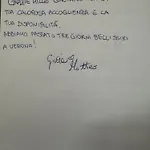 GRAZIE MILLE
TUA CALOROSA ACCOGLIENZA E LA
TUA DISPONIBILITÀ.
ABBIAMO PASSATO TRE GIORNI BELLISSIMI
A VERONA!
Giulia e Matteo